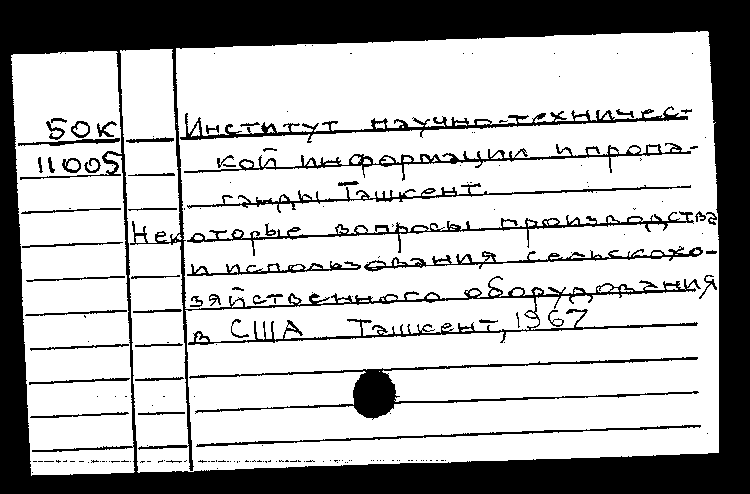 50К Институт научно-техничес-
11005 кой информации и пропа-
ганды Ташкент.
Некоторые вопросы производства
и использования сельскохо-
зяйственного оборудования
в США Ташкент, 1967